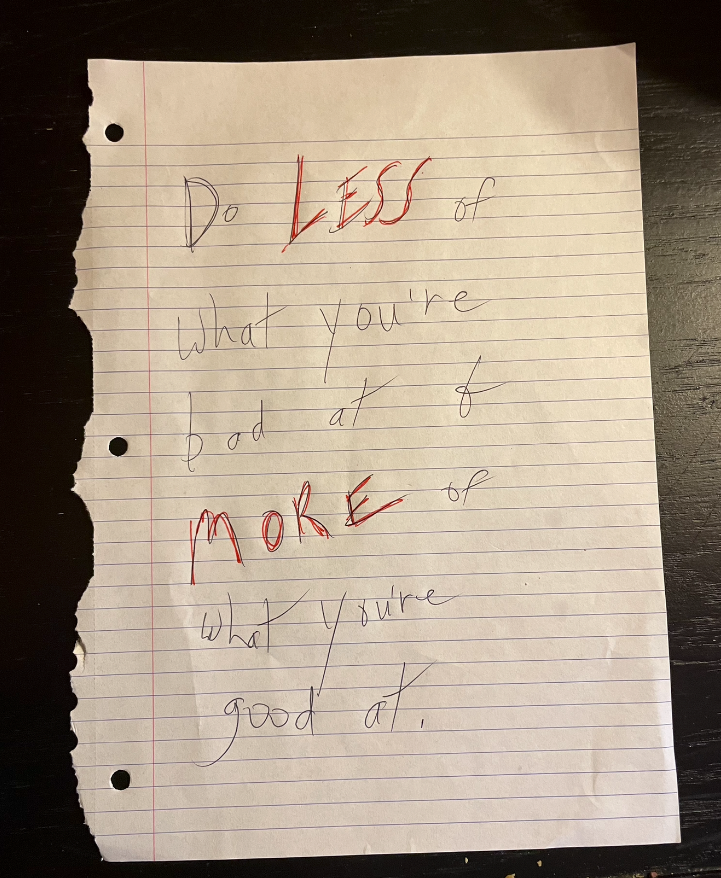 Do LESS of
what you're
bad at &
MORE of
what you're
good at.